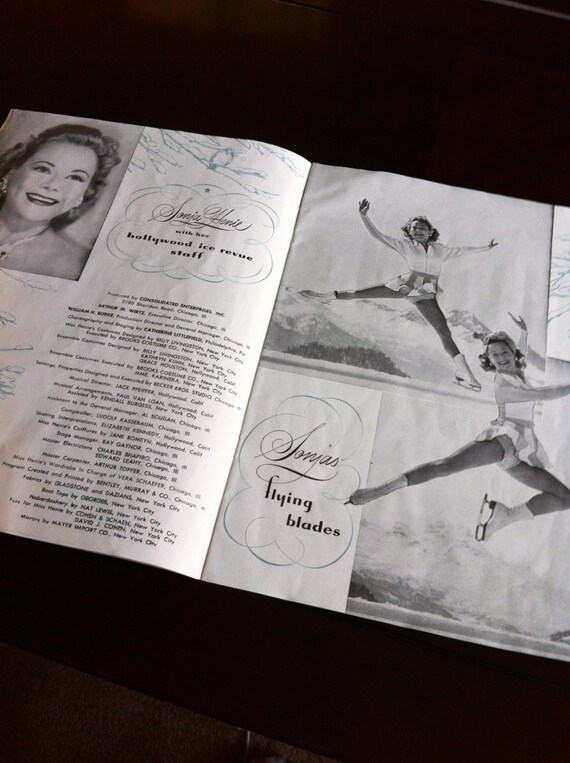 Sonja Henie
with her
hollywood ice revue
staff
Produced by CONSOLIDATED ENTERPRISES, INC.
3180 Sheridan Road, Chicago, Ill.
ARTHUR M. WIRTZ, Executive Director, Chicago, Ill.
WILLIAM H. BURKE, Production Director and General Manager, Chicago, Ill.
Choreography and Staging by CATHERINE LITTLEFIELD, Philadelphia, Pa
Miss Henie's Costumes Designed by BILLY LIVINGSTON, New York City
Executed by BROOKS COSTUME CO., New York City
Ensemble Costumes Designed by BILLY LIVINGSTON, New York City
KATHRYN KUHN, New York City
GRACE HOUSTON, Hollywood, Calif
Ensemble Costumes Executed by BROOKS COSTUME CO., New York City
MME. KARINSKA, New York City
Settings, Properties Designed and Executed by BECKER BROS. STUDIO, Chicago, Ill
Musical Director, JACK PFEIFFER, Hollywood, Calif
Musical Arrangements, PAUL VAN LOAN, Hollywood, Calif
Assisted by KENDALL BURGESS, New York City
Assistant to the General Manager, AL SOUDAN, Chicago, Ill
Comptroller, LUDOLF KASSEBAUM, Chicago, Ill.
Skating Interpretations, ELIZABETH KENNEDY, Hollywood, Calif
Miss Henie's Coiffures by JANE ROMEYN, Hollywood, Calif
Stage Manager, RAY GAYNOR, Chicago, Ill
Master Electricians CHARLES SHAPIRO, Chicago, Ill
EDWARD LEAHY, Chicago, Ill
Master Carpenter, ARTHUR TOFFER, Chicago, Ill
Miss Henie's Wardrobe in Charge of VERA SCHAEFER, Chicago, Ill
Program Created and Printed by BENTLEY, MURRAY & CO., Chicago, Ill
Fabrics by GLADSTONE and DAZIANS, New York City
Boot Tops by GEORGES, New York City
Haberdashery by NAT LEWIS, New York City
Furs for Miss Henie by COHEN & SCHAEN, New York City
DAVID J. COHEN, New York City
Mirrors by MAYER IMPORT CO., New York City
Sonjas
flying
blades